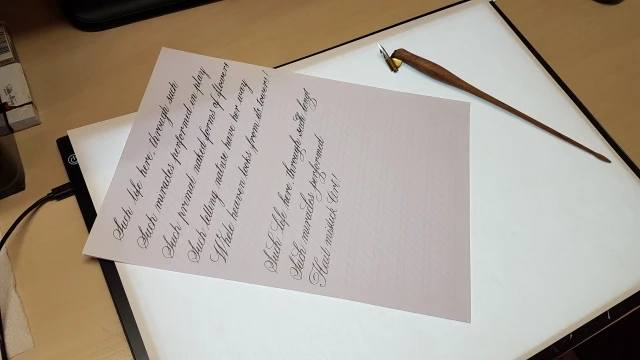 Such life here, through such
Such miracles performed in play
Such primal naked forms of flowers
Such letting nature have her way
While heaven looks from its towers!
Such life here, through such lengt
Such miracles performed
Had mistick Art!